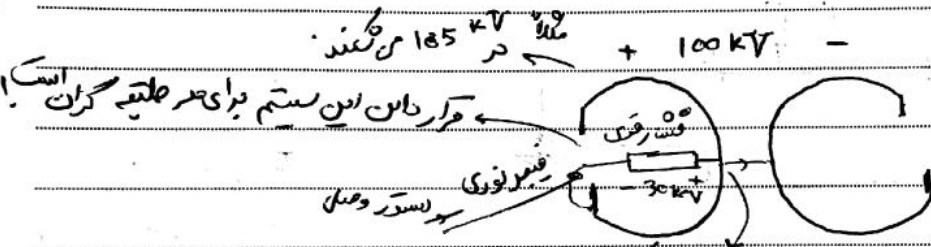 مثلاً در 185 kV می‌کنند.
+ 100 kV -
قرار دادن این سیستم برای هر طبقه گران است!
فشار قوی
فیبر نوری
- 30 kV +
دستور وصل